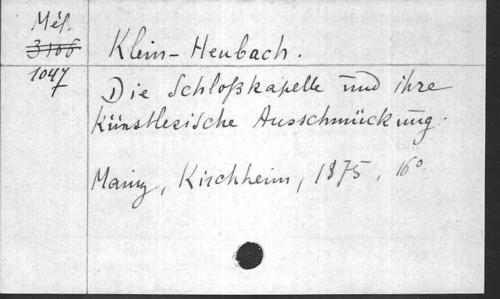 Mél.
3166
1047
Klein-Heubach.
Die Schloßkapelle und ihre
künstlerische Ausschmückung.
Mainz, Kirchheim, 1875, 16°